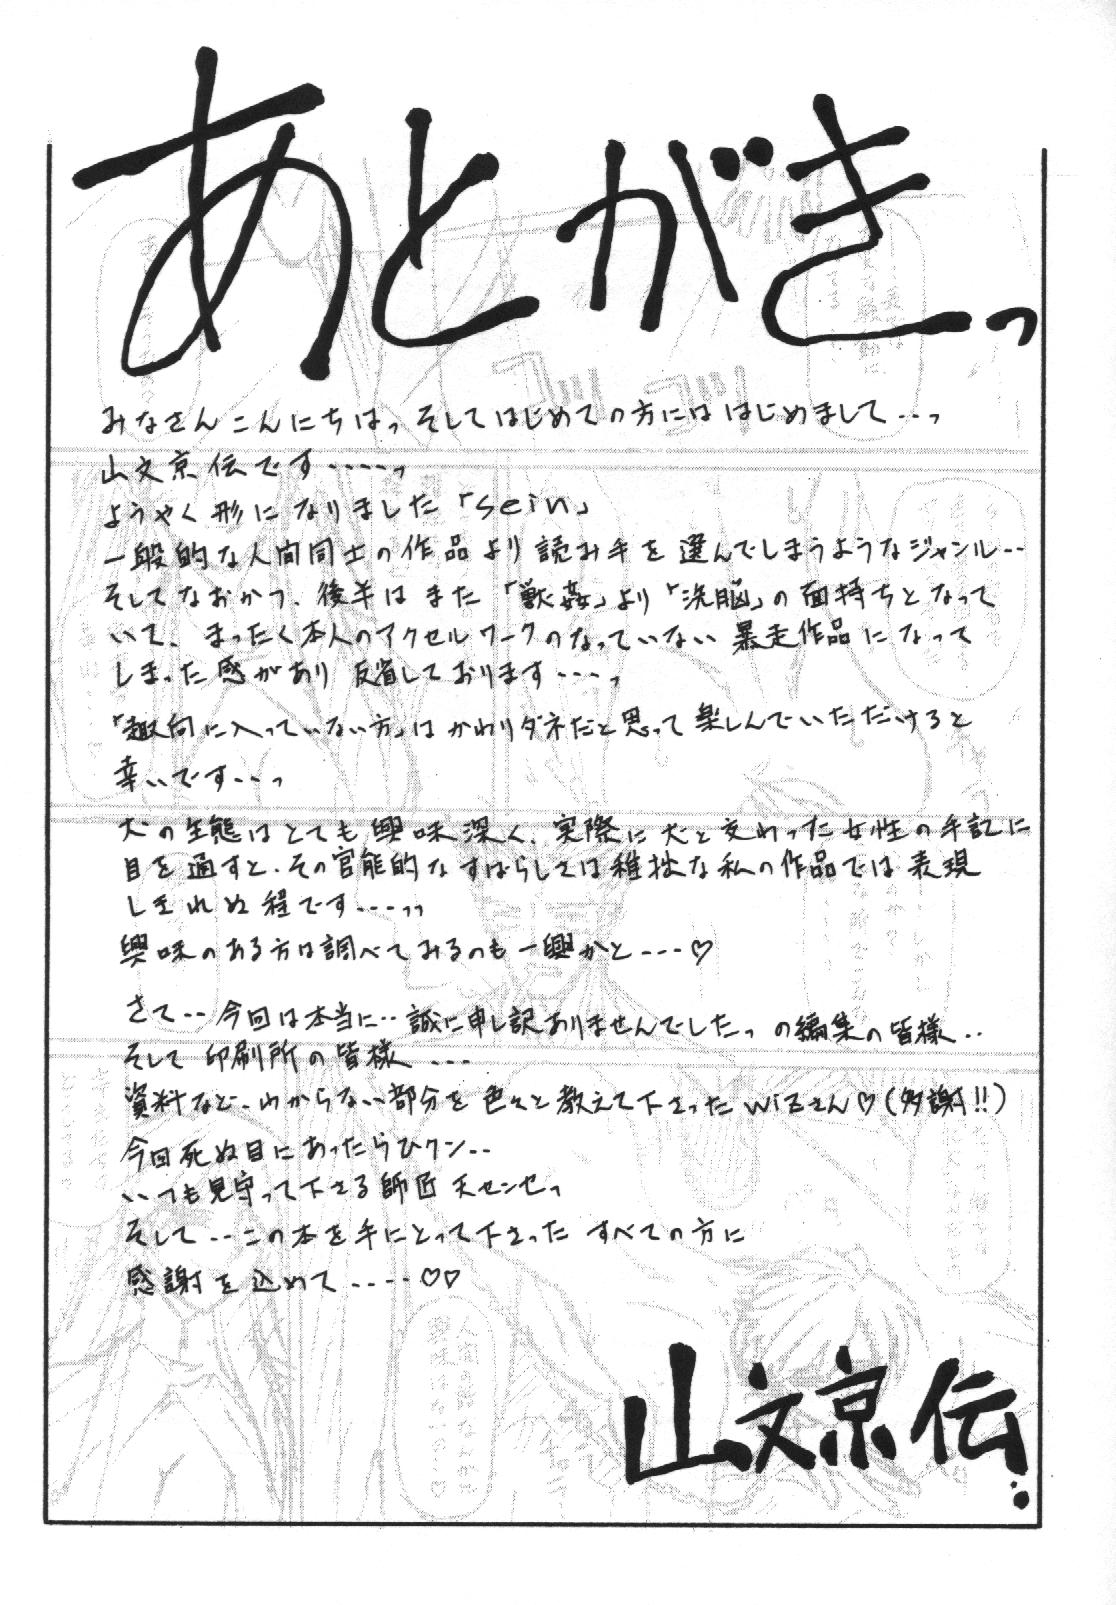 あとがきっ
みなさんこんにちはっ そしてはじめての方には はじめまして...っ
山文京伝です....っ
ようやく形になりました「sein」
一般的な人間同士の作品より読み手を選んでしまうようなジャンル..
そしてなおかつ、後半はまた「獣姦」より「洗脳」の面持ちとなって
いて、まったく本人のアクセルワークのなっていない暴走作品になって
しまった感があり反省しております....っ
「趣向に入っていない方」はかわりダネだと思って楽しんでいただけると
幸いです...っ
犬の生態はとても興味深く、実際に犬と交わった女性の手記に
目を通すと、その官能的なすばらしさは稚拙な私の作品では表現
しきれぬ程です...っっ
興味のある方は調べてみるのも一興かと...♡
さて.. 今回は本当に.. 誠に申し訳ありませんでしたっの編集の皆様..
そして印刷所の皆様...
資料など、わからない部分を色々と教えて下さったWIZさん♡(多謝!!)
今回死ぬ目にあったらひクン..
いつも見守って下さる師匠 天センセっ
そして..この本を手にとって下さった すべての方に
感謝を込めて....♡♡
山文京伝